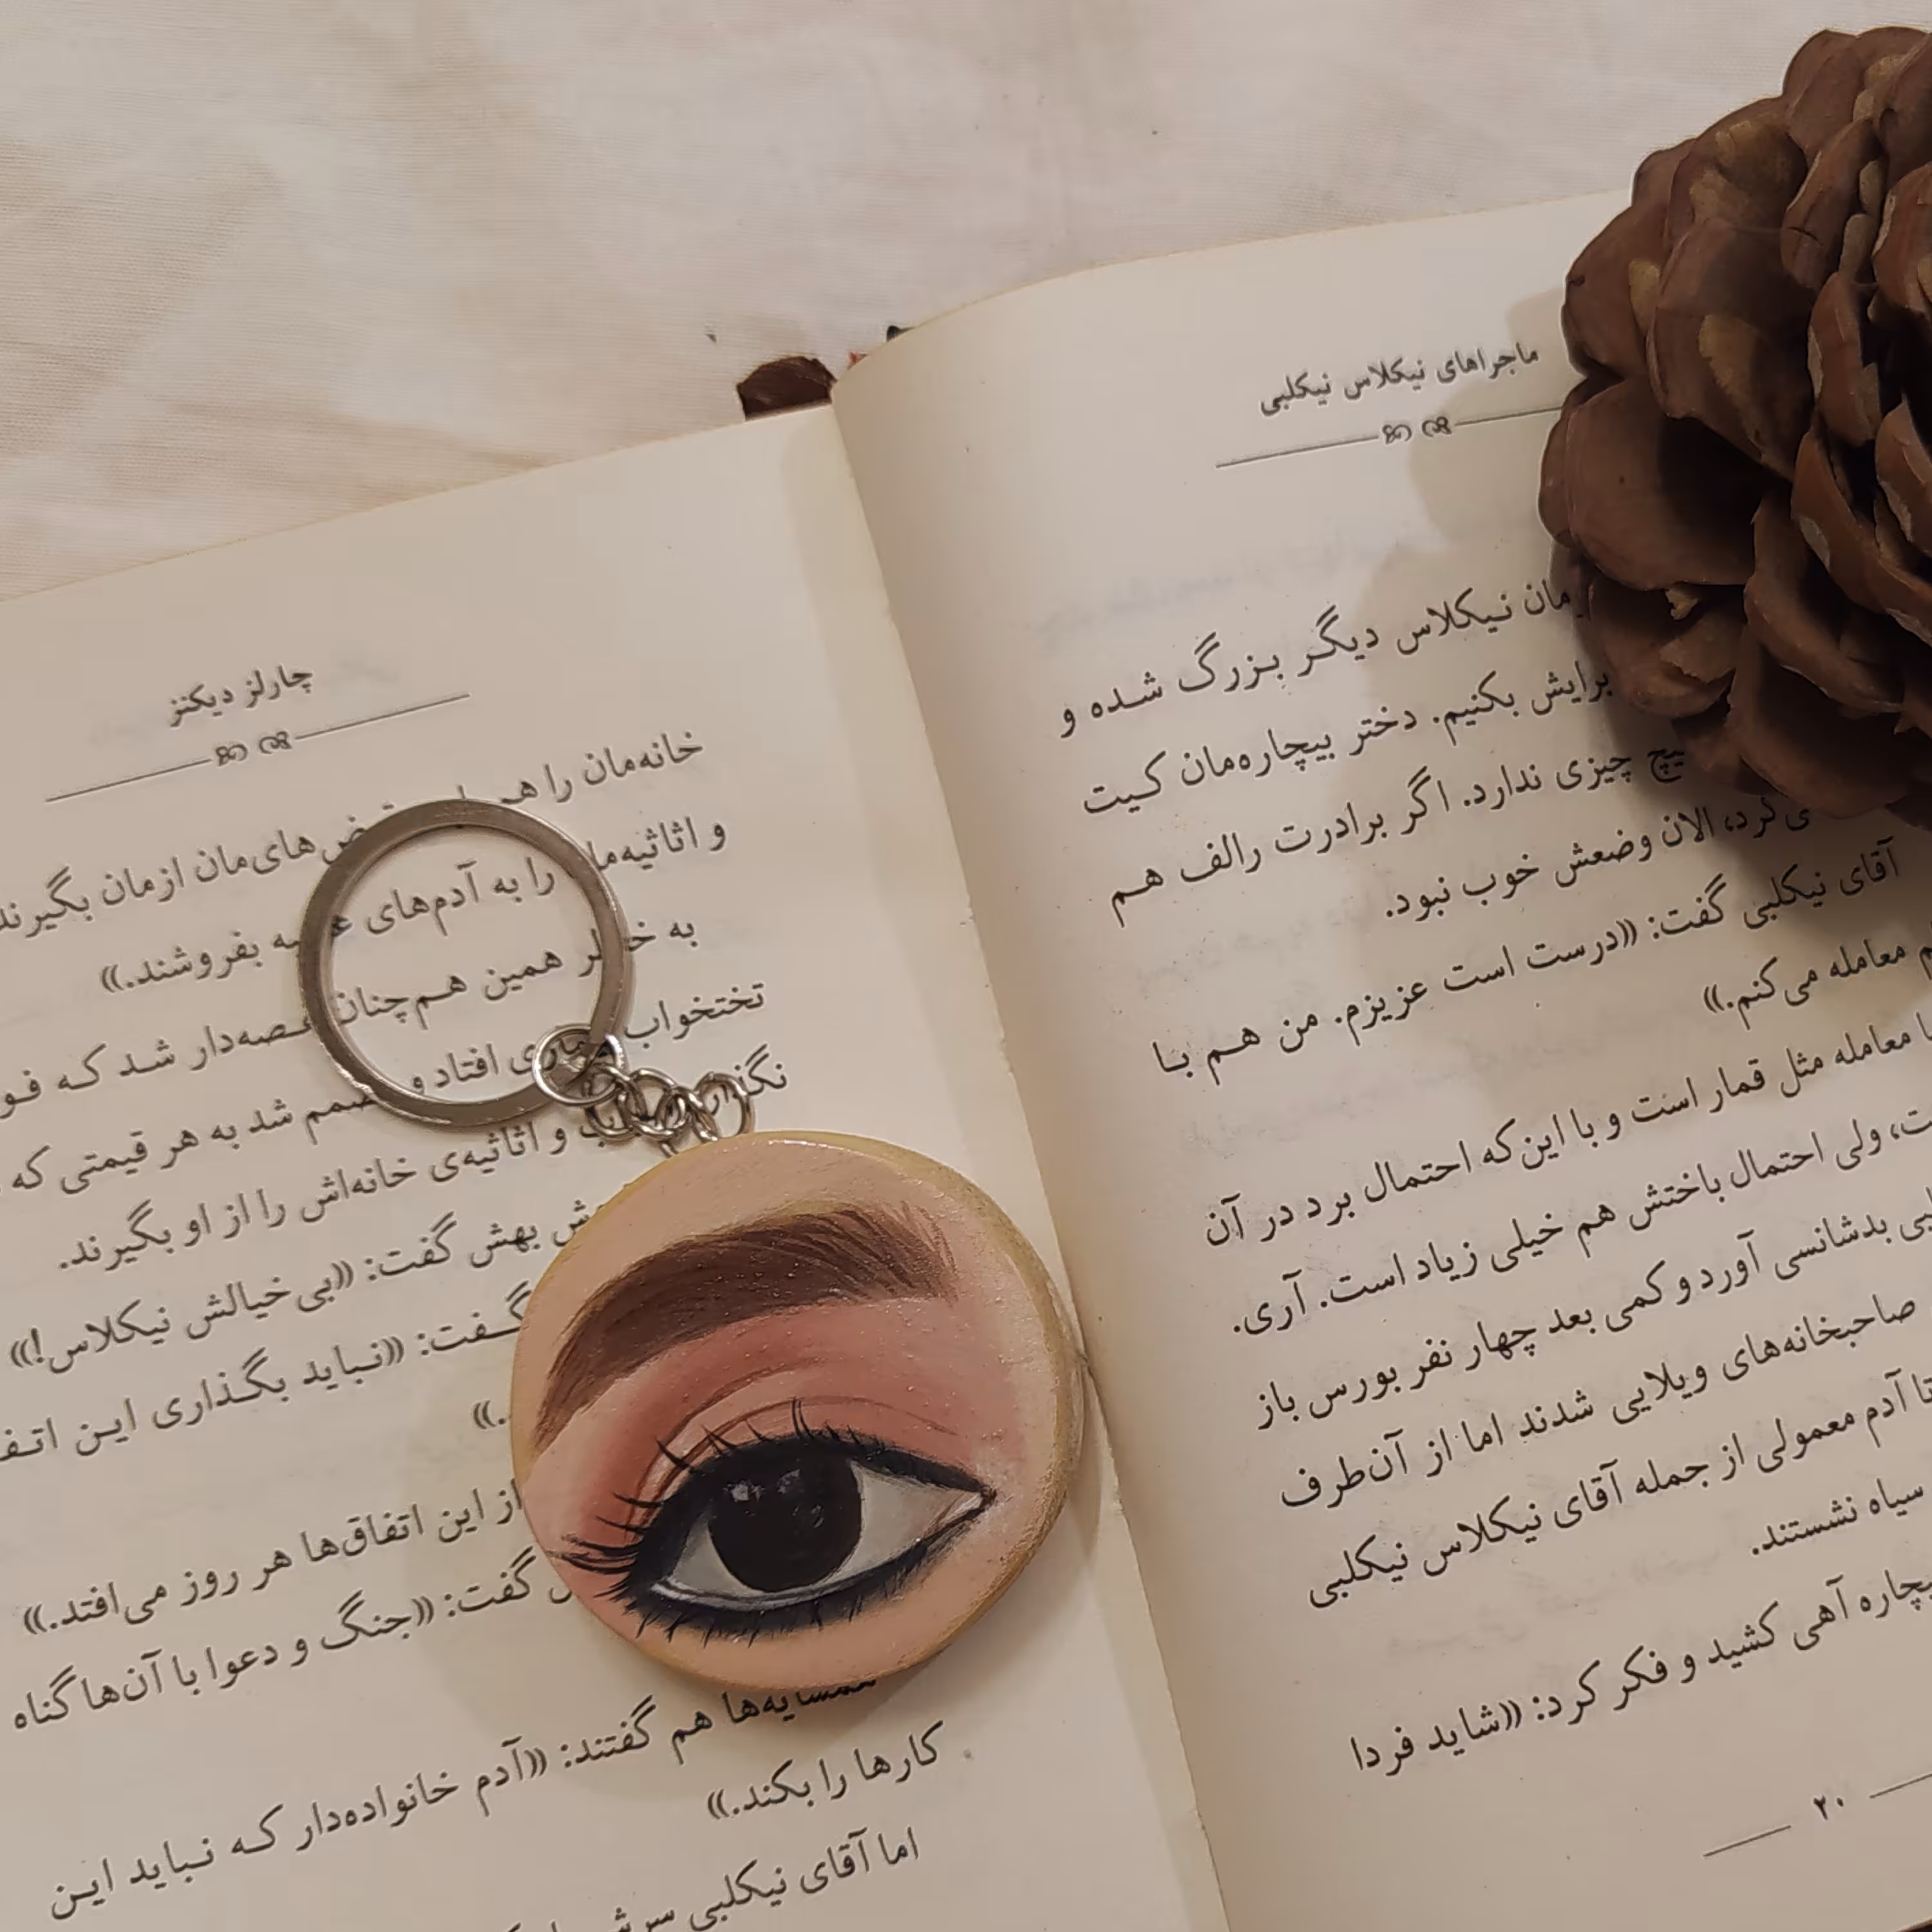 ماجراهای نیکلاس نیکلبی
مان نیکلاس دیگر بزرگ شده و
برایش بکنیم. دختر بیچاره‌مان کیت
چیزی ندارد. اگر برادرت رالف هم
الان وضعش خوب نبود.
آقای نیکلبی گفت: «درست است عزیزم. من هم با
معامله می‌کنم.»
معامله مثل قمار است و با این‌که احتمال برد در آن
ولی احتمال باختش هم خیلی زیاد است. آری.
بدشانسی آورد و کمی بعد چهار نفر بورس باز
صاحبخانه‌های ویلایی شدند اما از آن‌طرف
تا آدم معمولی از جمله آقای نیکلاس نیکلبی
سیاه نشستند.
آهی کشید و فکر کرد: «شاید فردا
۲۰
چارلز دیکنز
خانه‌مان را هم های‌مان ازمان بگیرند
و اثاثیه‌مان را به آدم‌های بفروشند.»
به خاطر همین هم‌چنان غصه‌دار شد که
تختخواب بیماری افتاد و مصمم شد به هر قیمتی که
و اثاثیه‌ی خانه‌اش را از او بگیرند.
بهش گفت: «بی‌خیالش نیکلاس!»
گفت: «نباید بگذاری این
از این اتفاق‌ها هر روز می‌افتد.»
گفت: «جنگ و دعوا با آن‌ها گناه
همسایه‌ها هم گفتند: «آدم خانواده‌دار که نباید این
کارها را بکند.»
اما آقای نیکلبی